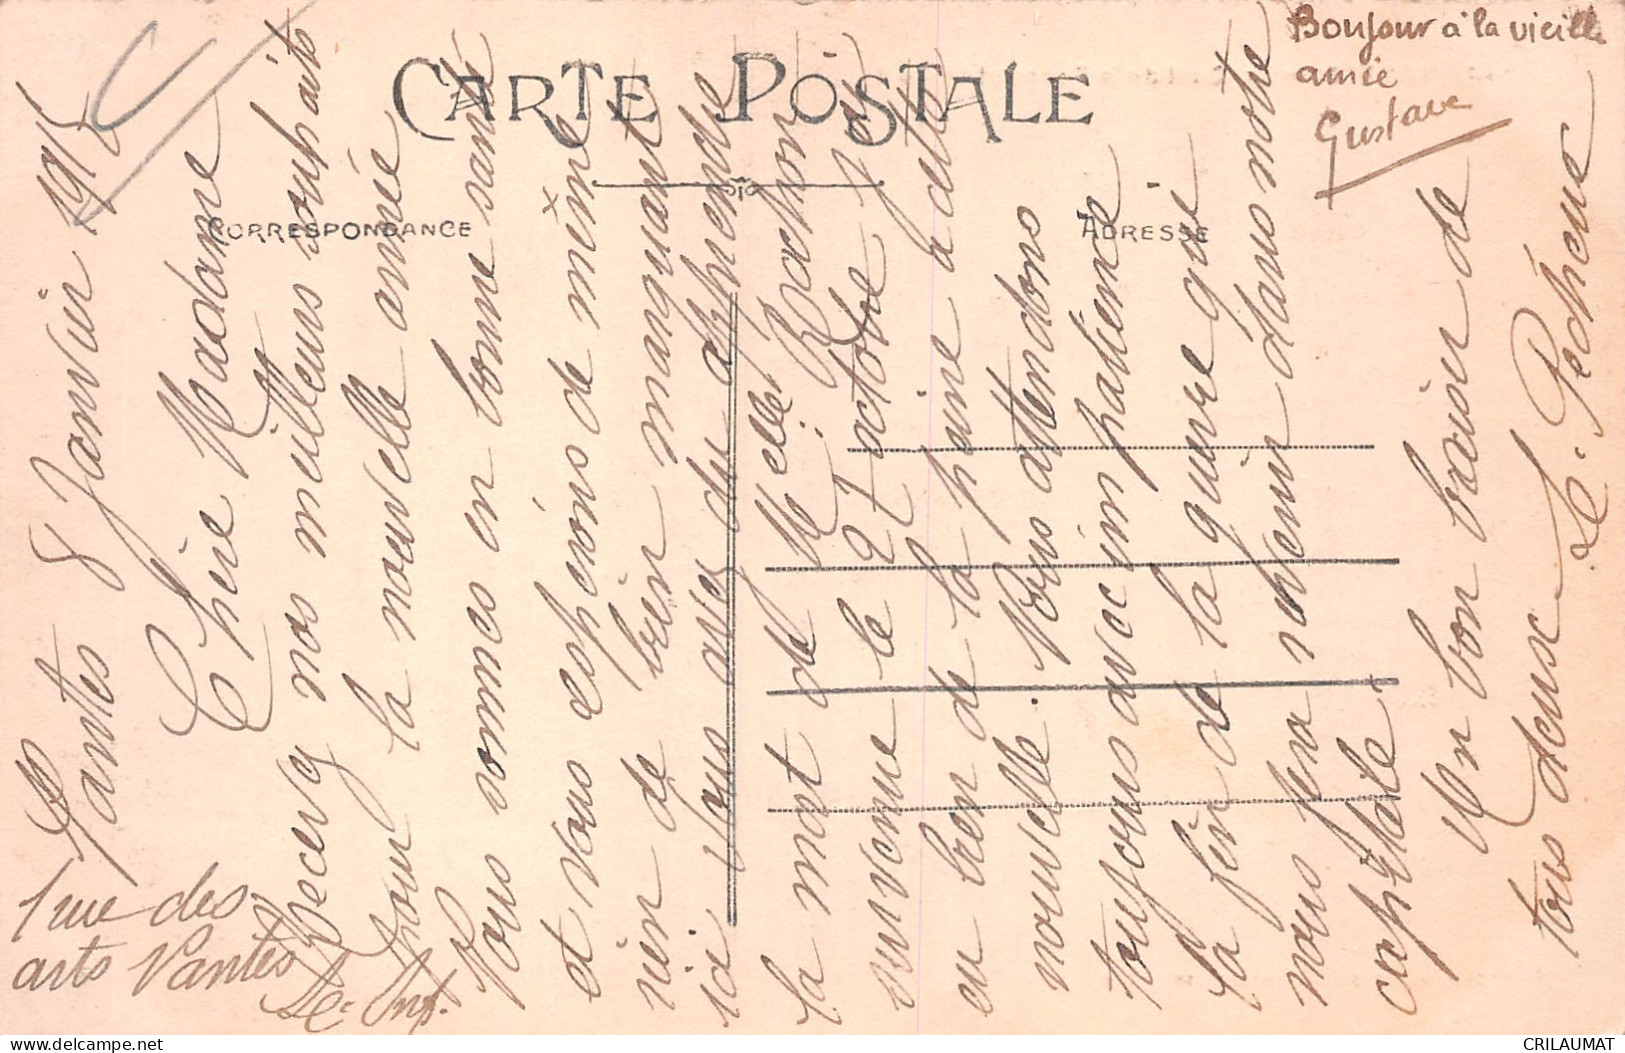 CARTE POSTALE
CORRESPONDANCE
ADRESSE
Nantes 8 Janvier 1915
Chère Madame
Recevez nos meilleurs souhaits
pour la nouvelle année
Nous sommes en bonne santé
et vous espérons de même
rien de bien manquant
ici vous avez du apprendre
la mort de Melle Rachon
survenue le 27 octobre
eu bien de la peine à cette
nouvelle. Nous attendons
toujours avec impatience
la fin de la guerre qui
nous fera revenir dans notre
capitale.
Un bon baiser de
tous deux L. Pecheux
1 rue des
arts Nantes
Bonjour à la vieille
amie
Gustave
CRILAUMAT